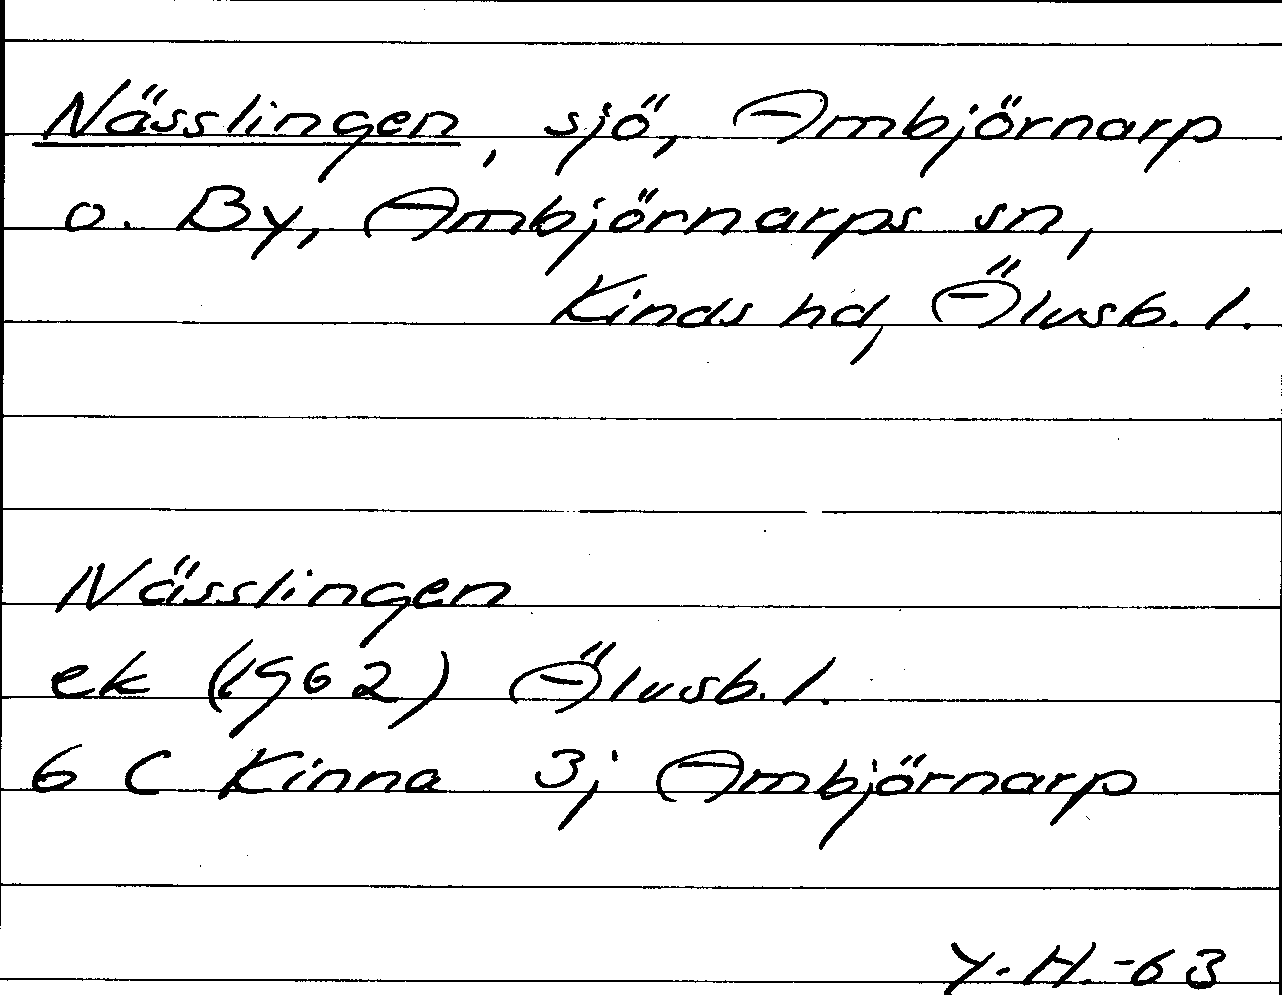 Nässlingen, sjö, Ambjörnarp
o. By, Ambjörnarps sn,
Kinds hd, Älvsb. l.
Nässlingen
ek (1962) Älvsb. l.
6 C Kinna 3j Ambjörnarp
Y. H. -63